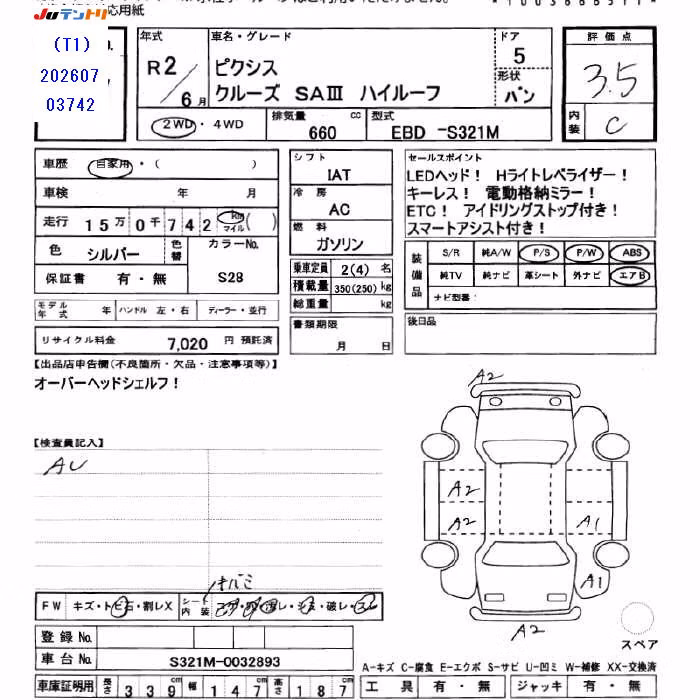 JUテントリ 応用紙
(T1)
202607
03742
年式 車名・グレード ドア 評価点
R2/6月 ピクシス 5 3.5
クルーズ SAⅢ ハイルーフ 形状 バン
2WD・4WD 排気量 660 cc 型式 EBD -S321M 内装 C
車歴 自家用・( )
車検 年 月
走行 15万0千742 km マイル ( )
色 シルバー 色替 カラーNo. S28
保証書 有・無
モデル年式 年 ハンドル 左・右 ディーラー・並行
リサイクル料金 7,020 円 預託済
シフト IAT
冷房 AC
燃料 ガソリン
乗車定員 2(4) 名
積載量 350(250) kg
総重量 kg
書類期限
月 日
セールスポイント
LEDヘッド! Hライトレベライザー!
キーレス! 電動格納ミラー!
ETC! アイドリングストップ付き!
スマートアシスト付き!
装備品 S/R 純A/W P/S P/W ABS
純TV 純ナビ 革シート 外ナビ エアB
ナビ型番:
後日品
【出品店申告欄(不良箇所・欠品・注意事項等)】
オーバーヘッドシェルフ!
【検査員記入】
AU
A2
A2
A2 A1
A1
A2
スペア
FW キズ・トビ石・割レX シート内装
登録No.
車台No. S321M-0032893
車庫証明用 長さ 339 cm 幅 147 cm 高さ 187 cm
A-キズ C-腐食 E-エクボ S-サビ U-凹ミ W-補修 XX-交換済
工具 有・無 ジャッキ 有・無